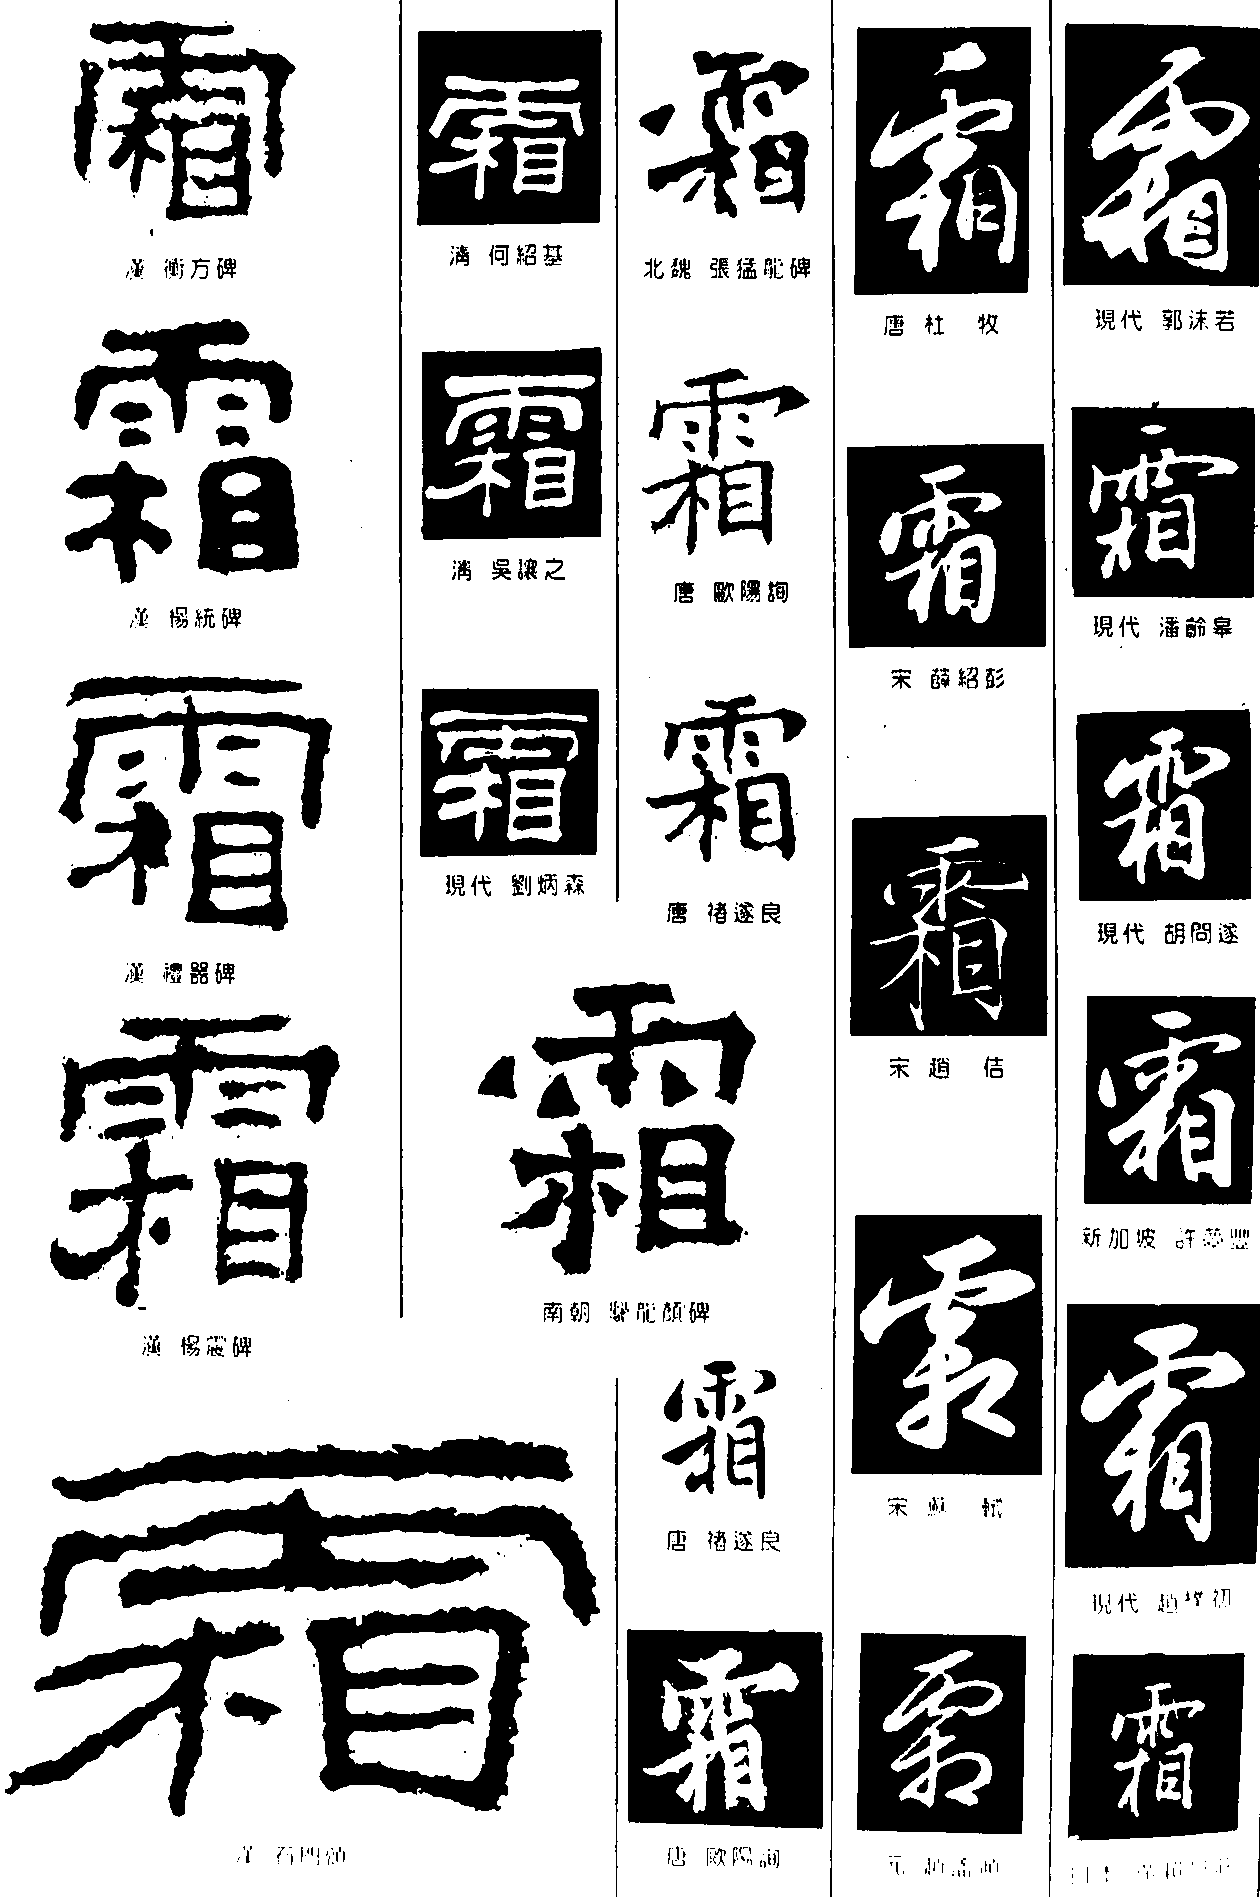 霜
漢 衡方碑
霜
漢 楊統碑
霜
漢 禮器碑
霜
漢 楊震碑
霜
漢 石門頌
霜
清 何紹基
霜
清 吳讓之
霜
現代 劉炳森
霜
北魏 張猛龍碑
霜
唐 歐陽詢
霜
唐 褚遂良
霜
南朝 爨龍顏碑
霜
唐 褚遂良
霜
唐 歐陽詢
霜
唐 杜 牧
霜
宋 薛紹彭
霜
宋 趙 佶
霜
宋 蘇 軾
霜
元 趙孟頫
霜
現代 郭沫若
霜
現代 潘齡皋
霜
現代 胡問遂
霜
新加坡 許夢豐
霜
現代 趙樸初
霜
日本